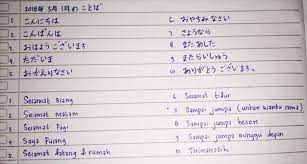 2018年 3月 (月)の ことば
1. こんにちは
2. こんばんは
3. おはよう ございます
4. ただいま
5. おかえりなさい
6. おやすみ なさい
7. さようなら
8. また あした
9. また らいしゅう
10. ありがとう ございます。
1 Selamat siang
2 Selamat malam
3 Selamat Pagi
4 Saya Pulang
5. Selamat datang di rumah
6 Selamat tidur
7 Sampai jumpa (untuk waktu lama)
8 Sampai jumpa besok
9 Sampai jumpa minggu depan
10 Terimakasih